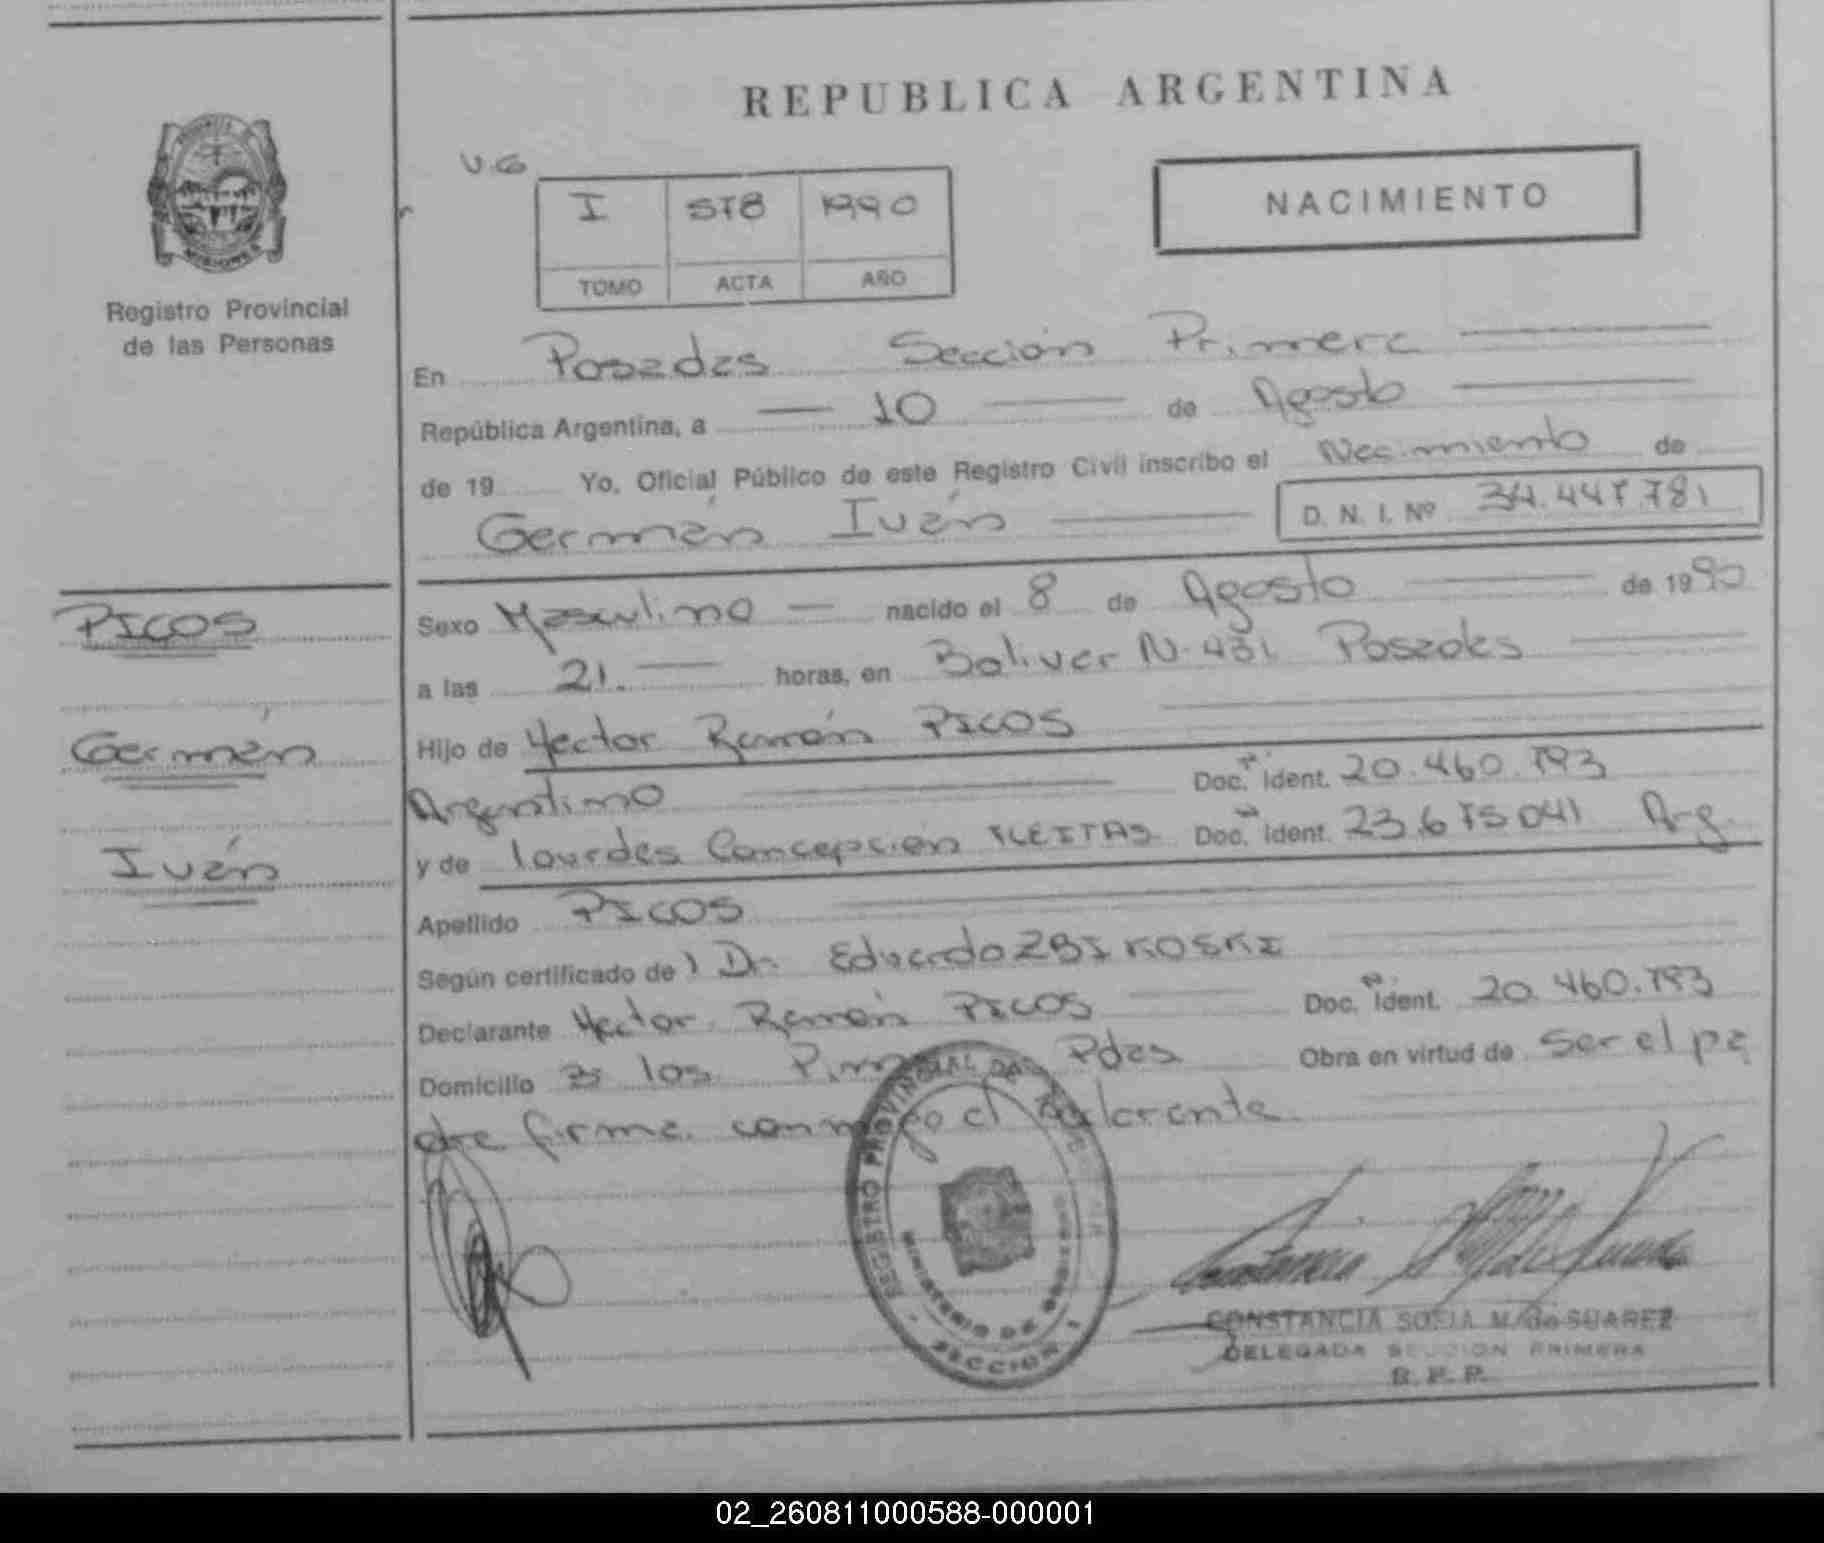 REPUBLICA ARGENTINA
MISIONES
Registro Provincial
de las Personas
V.G
I 578 1990
TOMO ACTA AÑO
NACIMIENTO
En Posadas Sección Primera
República Argentina, a 10 de Agosto
de 19 Yo, Oficial Público de este Registro Civil inscribo el Nacimiento de
Germán Iván D. N. I. Nº 34.447.781
PICOS
Germán
Iván
Sexo Masculino nacido el 8 de Agosto de 1990
a las 21. horas, en Bolivar N. 431 Posadas
Hijo de Hector Ramón PICOS
Argentino Doc. Ident. 20.460.793
y de Lourdes Concepción FLEITAS Doc. Ident. 23.675.041 Arg.
Apellido PICOS
Según certificado de Dr. Eduardo ZBIKOSKI
Declarante Hector Ramón PICOS Doc. Ident. 20.460.793
Domicilio los Pdas Obra en virtud de ser el pa
dre firma conmigo el declarante.
REGISTRO PROVINCIAL DE
MINISTERIO DE GOBIERNO
SECCION 1
CONSTANCIA SOFIA M. de SUAREZ
DELEGADA SECCION PRIMERA
R. P. P.
02_260811000588-000001